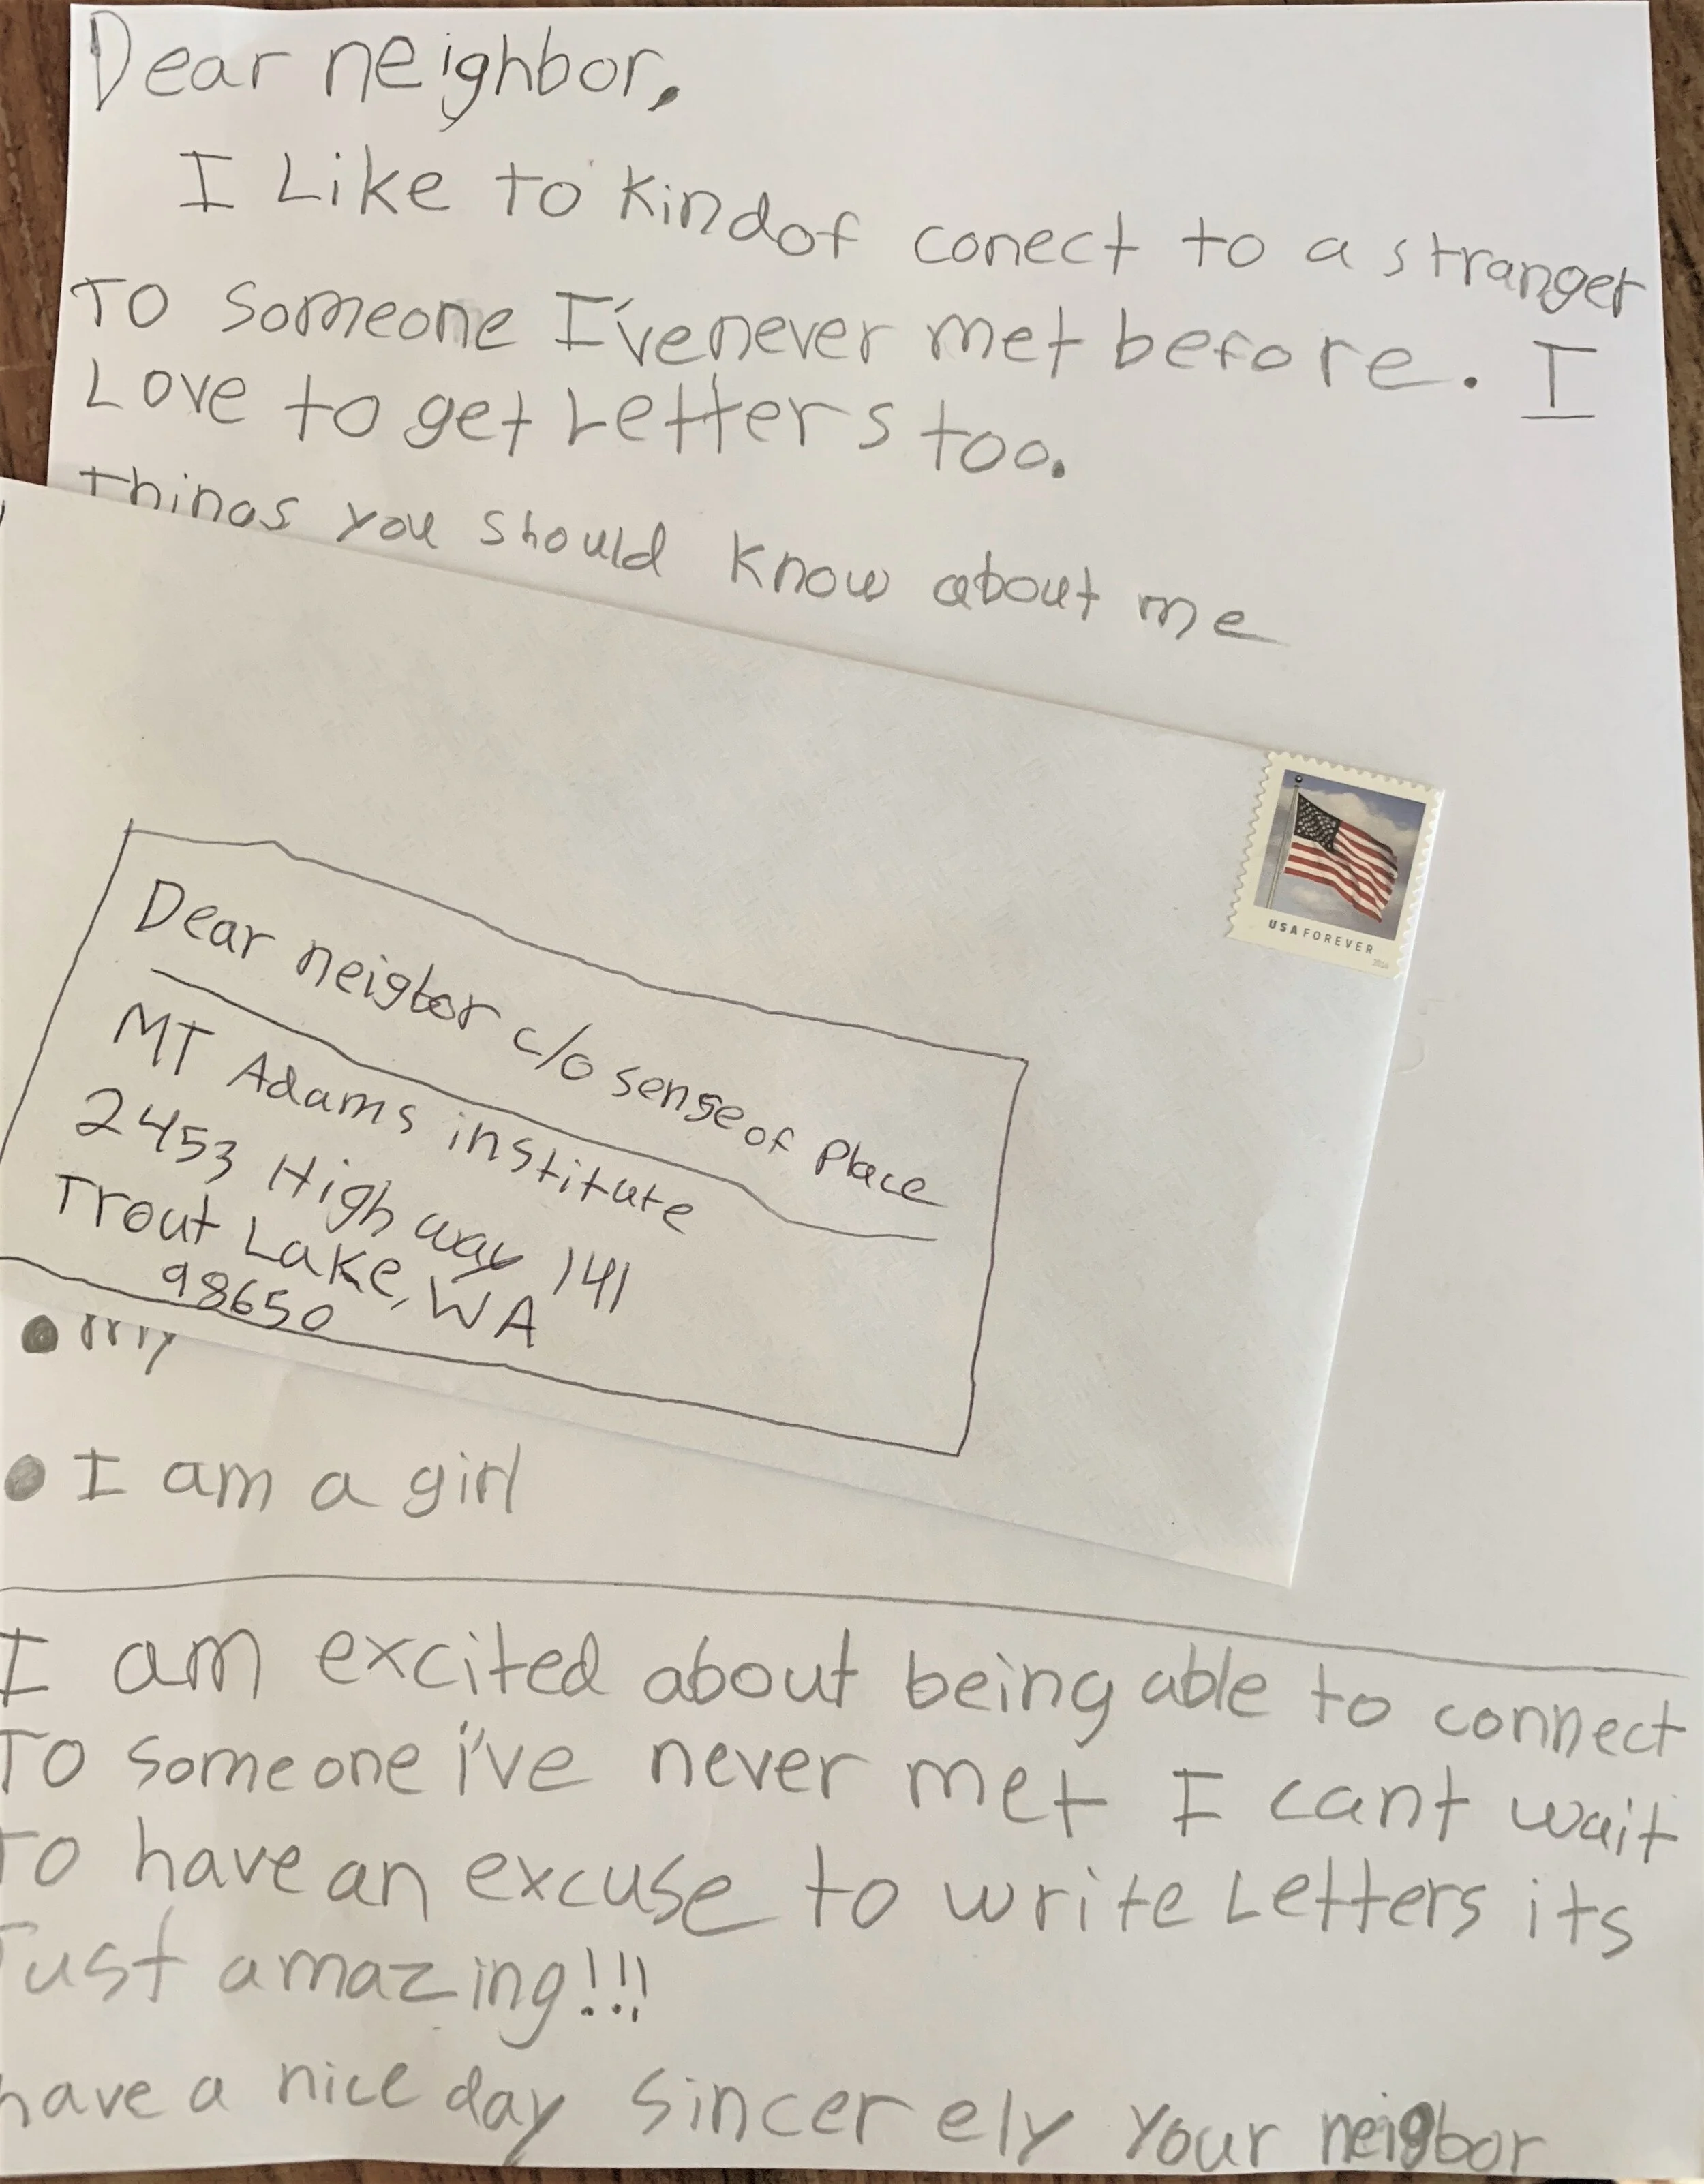 Dear neighbor,
I Like to kind of conect to a stranger
To someone I've never met before. I
Love to get Letters too.
things you should know about me
USA FOREVER
Dear neigbor c/o sense of Place
MT Adams institute
2453 Highway 141
Trout Lake, WA
98650
my
I am a girl
I am excited about being able to connect
To someone i've never met I cant wait
To have an excuse to write Letters its
Just amazing!!!
have a nice day sincerely Your neigbor